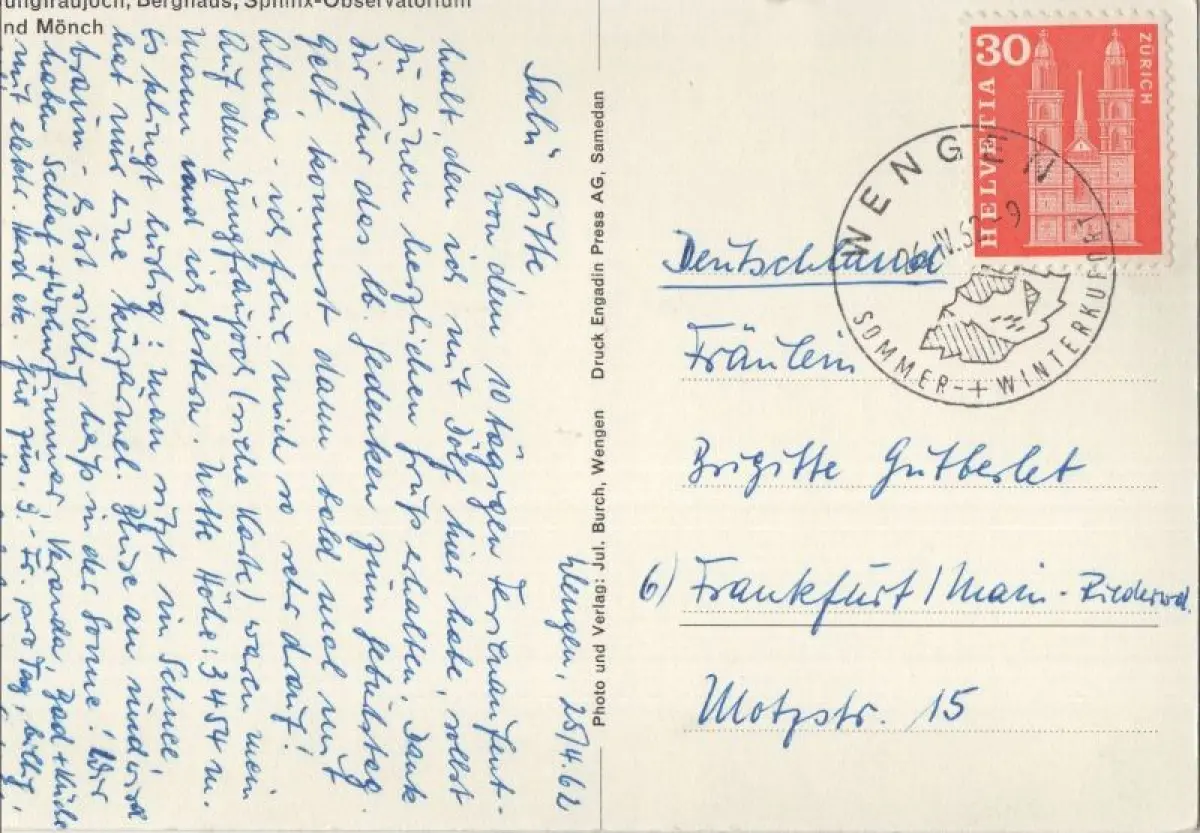 Jungfraujoch, Berghaus, Sphinx-Observatorium
und Mönch
Wengen, 25/4.62
Gitte
von dem 10 tägigen Ferienaufent-
halt, den ich mit Rolf hier habe, sollst
Du einen herzlichen Gruß erhalten. Dank
Dir für das lb. Gedenken zum Gebürtstag.
Gelt, kommst dann bald mal mit
ich freue mich so sehr drauf!
Auf dem Jungfraujoch (siehe Karte) waren mein
Mann und ich gestern. Nette Höhe: 3454 m.
Es klingt lustig: man sitzt im Schnee,
hat nur eine kurzärmel. Bluse an und wird
braun - es ist richtig heiß in der Sonne! Wir
haben Schlaf- + Wohnzimmer, Veranda, Bad + Küche
mit elektr. Herd etc. für zus. 9.- Fr. pro Tag, billig,
Photo und Verlag: Jul. Burch, Wengen Druck Engadin Press AG, Samedan
30
HELVETIA
ZÜRICH
WENGEN
SOMMER- + WINTERKURORT
Deutschland
Fräulein
Brigitte Gutberlet
6) Frankfurt/Main - Riederwd.
Motzstr. 15